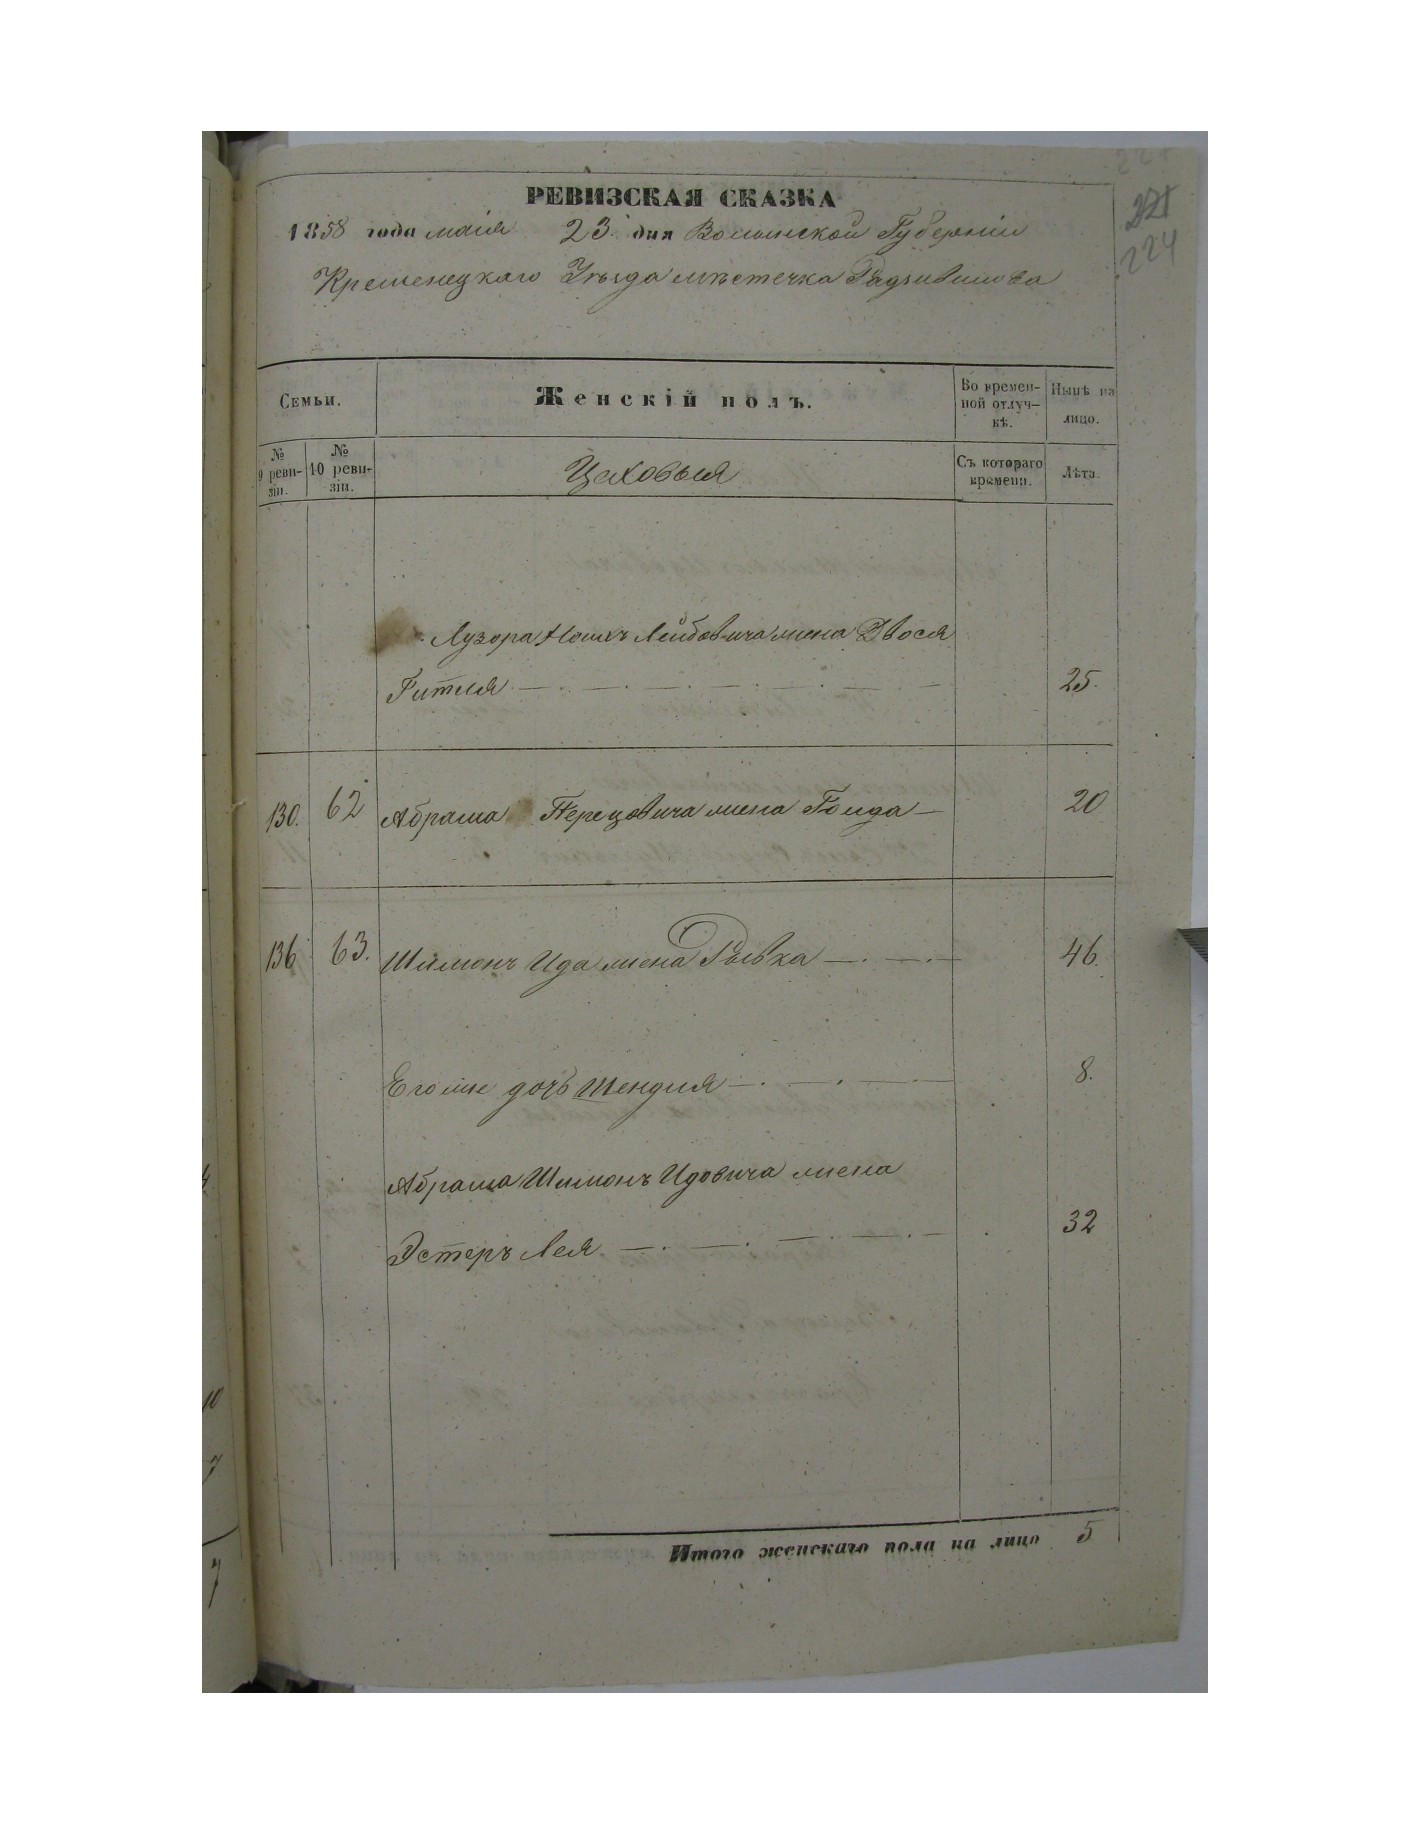 РЕВИЗСКАЯ СКАЗКА
1858 года маія 23 дня Волынской Губерніи
Кременецкаго Уѣзда мѣстечка Радзивилова
224
Семьи.
Женскій полъ.
Во времен-
ной отлуч-
кѣ.
Нынѣ на
лицо.
№
9 реви-
зіи.
№
10 реви-
зіи.
Цеховыя
Съ котораго
времени.
Лѣта.
Лузора Лейбовича жена Двося
Гителя 25.
130. 62 Абрама Перецовича жена Голда 20
136 63. Шимонъ Ида жена Рывка 46.
Его же дочь Шендля 8.
Абрама Шимонъ Идовича жена
Эстеръ Лея 32
Итого женскаго пола на лицо 5